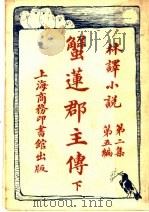 林譯小說
第二集
第五編
蟹蓮郡主傳 下
上海商務印書館出版